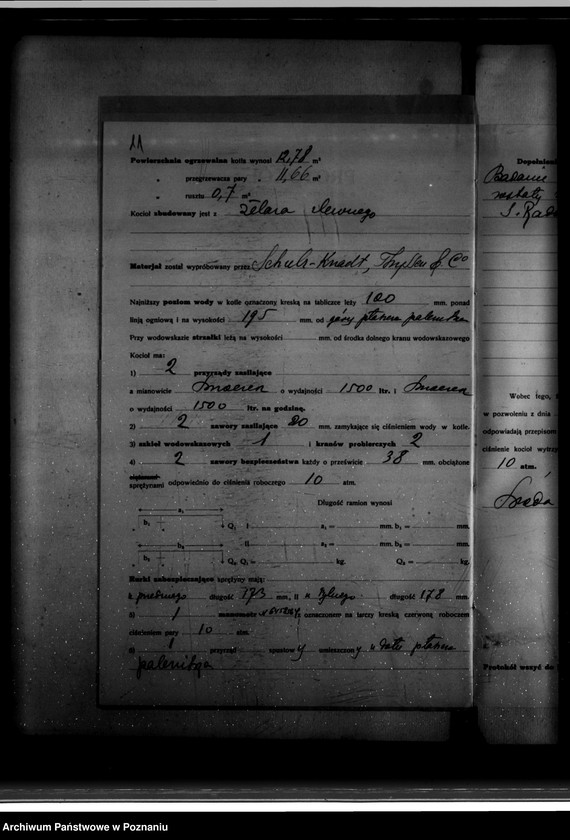 11
Powierzchnia ogrzewalna kotła wynosi 12,78 m²
„ przegrzewacza pary „ 11,66 m²
„ rusztu 0,7 m²
Kocioł zbudowany jest z żelaza
Materjał został wypróbowany przez Schulz-Knaudt, Thyssen & Co
Najniższy poziom wody w kotle oznaczony kreską na tabliczce leży 100 mm. ponad
linją ogniową i na wysokości 195 mm. od góry płaszcza paleniska
Przy wodowskazie strzałki leżą na wysokości mm. od środka dolnego kranu wodowskazowego
Kocioł ma:
1) 2 przyrządy zasilające
a mianowicie o wydajności 1500 ltr. i
o wydajności 1500 ltr. na godzinę.
2) 2 zawory zasilające 20 mm. zamykające się ciśnieniem wody w kotle.
3) szkieł wodowskazowych 1 i kranów probierczych 2
4) 2 zawory bezpieczeństwa każdy o prześwicie 38 mm. obciążone
ciężarami
sprężynami odpowiednio do ciśnienia roboczego 10 atm.
Długość ramion wynosi
a₁ b₁ Q₁ I a₁ = mm. b₁ = mm.
II a₂ = mm. b₂ = mm.
Q₁ = kg. Q₂ = kg.
Rurki zabezpieczające sprężyny mają:
długość 173 mm., II długość 178 mm.
5) 1 oznaczonem na tarczy kreską czerwoną roboczem
ciśnieniem pary 10 atm.
6) 1 przyrząd spustowy umieszczony u dołu płaszcza
paleniska
Dopełnieni
Badanie
S. Rada
Wobec tego,
w pozwoleniu z dnia
odpowiadają przepisom
ciśnienie kocioł wytrzy
10 atm.
Środa
Protokół wszyć do
Archiwum Państwowe w Poznaniu